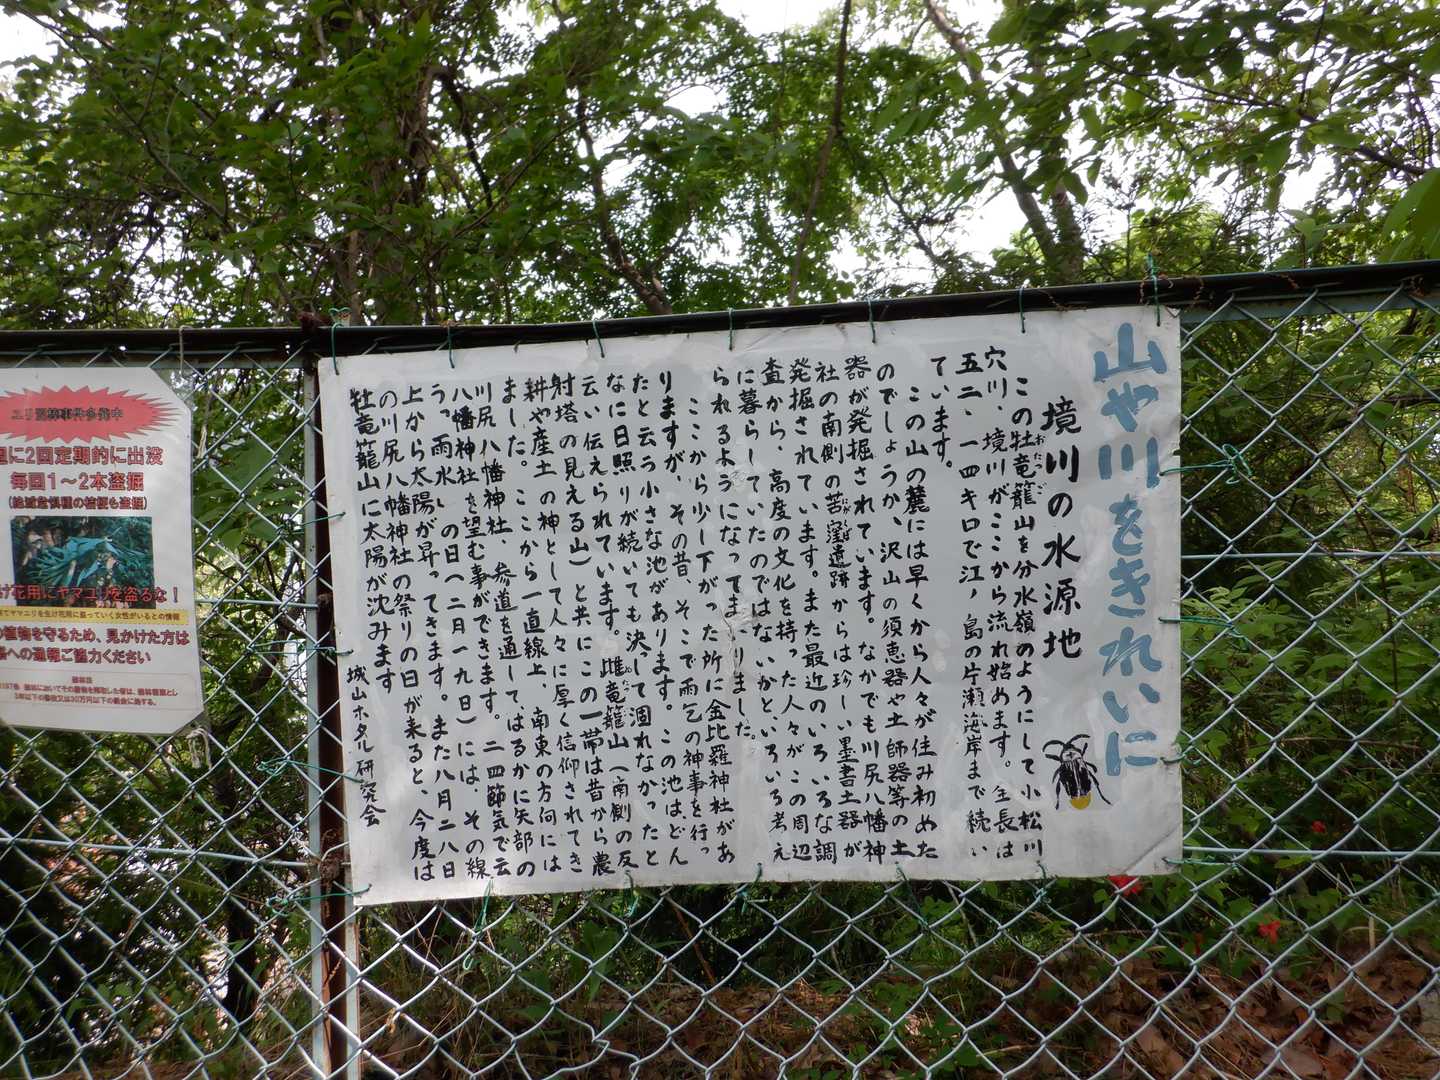 山や川をきれいに
境川の水源地
この牡竜籠山を分水嶺のようにして小松川
穴川、境川がここから流れ始めます。全長は
五二、一四キロで江ノ島の片瀬海岸まで続い
ています。
この山の麓には早くから人々が住み初めた
のでしょうか、沢山の須恵器や土師器等の土
器が発掘されています。なかでも川尻八幡神
社の南側の苦窪遺跡からは珍しい墨書土器が
発掘されています。また最近のいろいろな調
査から、高度の文化を持った人々がこの周辺
に暮らしていたのではないかと、いろいろ考え
られるようになってまいりました。
ここから少し下がった所に金比羅神社があ
りますが、その昔、そこで雨乞の神事を行っ
たと云う小さな池があります。この池は、どん
なに日照りが続いても決して涸れなかったと
云い伝えられています。雌竜籠山(南側の反
射塔の見える山)と共にこの一帯は昔から農
耕や産土の神として人々に厚く信仰されてき
ました。ここから一直線上、南東の方向には
川尻八幡神社、参道を通して、はるかに矢部の
八幡神社を望む事ができます。二四節気で云
う、雨水、の日(二月一九日)には、その線
上から太陽が昇ってきます。また八月二八日
の川尻八幡神社の祭りの日が来ると、今度は
牡竜籠山に太陽が沈みます
城山ホタル研究会
に2回定期的に出没
毎回1~2本盗掘
(絶滅危惧種の桔梗も盗掘)
け花用にヤマユリを盗るな!
植物を守るため、見かけた方は
への通報ご協力ください
森林法